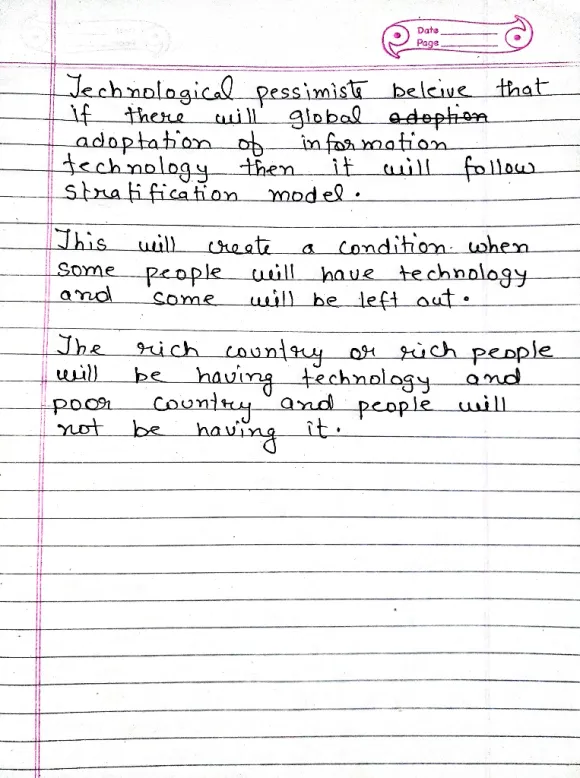 Date
Page
Technological pessimists beleive that
if there will global adoption
adoptation of information
technology then it will follow
stratification model.
This will create a condition when
some people will have technology
and some will be left out.
The rich country or rich people
will be having technology and
poor country and people will
not be having it.